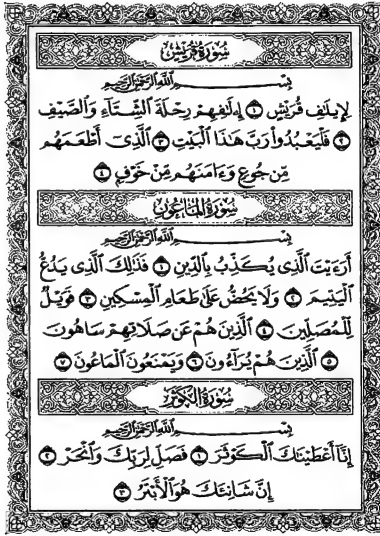 سُورَةُ قُرَيْشٍ
بِسْمِ اللَّهِ الرَّحْمَٰنِ الرَّحِيمِ
لِإِيلَافِ قُرَيْشٍ ١ إِۦلَافِهِمْ رِحْلَةَ الشِّتَاءِ وَالصَّيْفِ
٢ فَلْيَعْبُدُوا رَبَّ هَٰذَا الْبَيْتِ ٣ الَّذِي أَطْعَمَهُم
مِّن جُوعٍ وَءَامَنَهُم مِّنْ خَوْفٍ ٤
سُورَةُ الْمَاعُونِ
بِسْمِ اللَّهِ الرَّحْمَٰنِ الرَّحِيمِ
أَرَءَيْتَ الَّذِي يُكَذِّبُ بِالدِّينِ ١ فَذَٰلِكَ الَّذِي يَدُعُّ
الْيَتِيمَ ٢ وَلَا يَحُضُّ عَلَىٰ طَعَامِ الْمِسْكِينِ ٣ فَوَيْلٌ
لِّلْمُصَلِّينَ ٤ الَّذِينَ هُمْ عَن صَلَاتِهِمْ سَاهُونَ
٥ الَّذِينَ هُمْ يُرَاءُونَ ٦ وَيَمْنَعُونَ الْمَاعُونَ ٧
سُورَةُ الْكَوْثَرِ
بِسْمِ اللَّهِ الرَّحْمَٰنِ الرَّحِيمِ
إِنَّا أَعْطَيْنَاكَ الْكَوْثَرَ ١ فَصَلِّ لِرَبِّكَ وَانْحَرْ ٢
إِنَّ شَانِئَكَ هُوَ الْأَبْتَرُ ٣